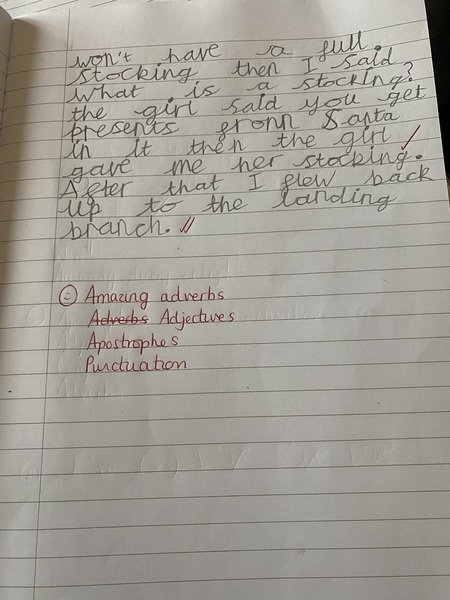 won't have a full.
stocking then I said
what is a stocking?
the girl said you get
presents from Santa
in it then the girl
gave me her stocking.
After that I flew back
up to the landing
branch.
Amazing adverbs
Adverbs Adjectives
Apostrophes
Punctuation